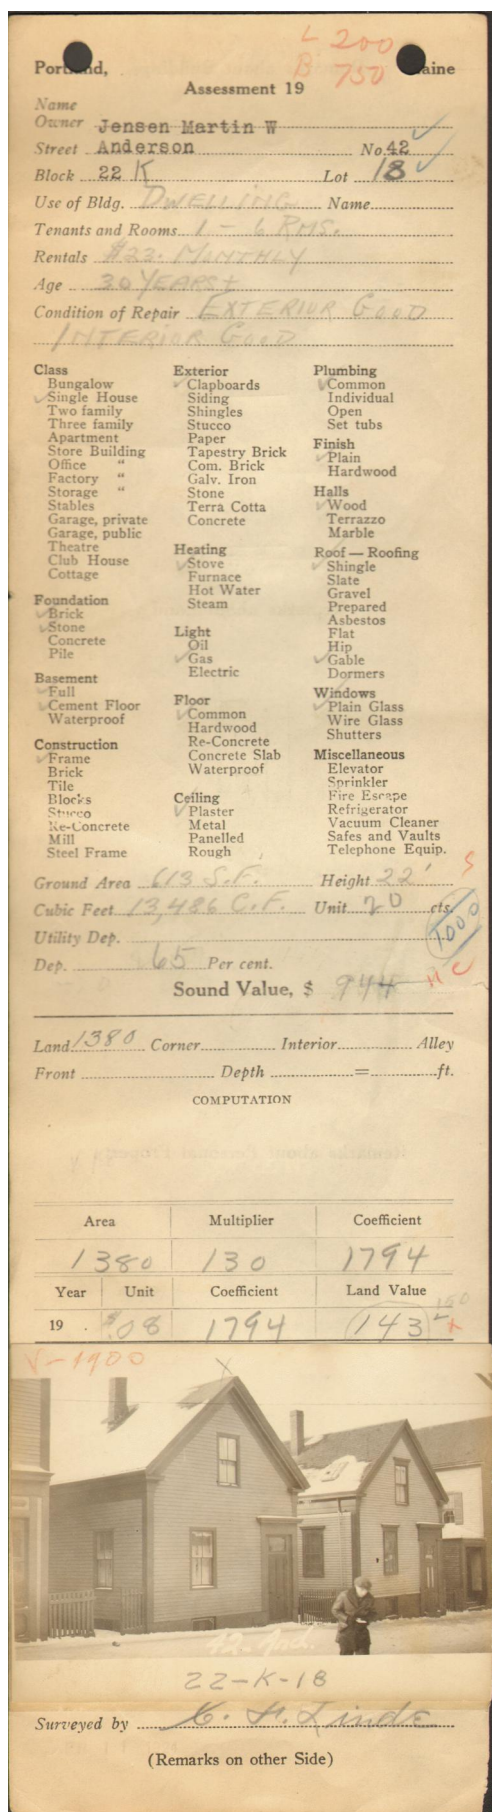 L 200
B 750
Portland, Maine
Assessment 19
Name
Owner Jensen Martin W
Street Anderson No. 42
Block 22 K Lot 18
Use of Bldg. DWELLING Name
Tenants and Rooms 1 - 6 RMS.
Rentals $23. MONTHLY
Age 30 YEARS +
Condition of Repair EXTERIOR GOOD
INTERIOR GOOD
Class
Bungalow
Single House
Two family
Three family
Apartment
Store Building
Office "
Factory "
Storage "
Stables
Garage, private
Garage, public
Theatre
Club House
Cottage
Foundation
Brick
Stone
Concrete
Pile
Basement
Full
Cement Floor
Waterproof
Construction
Frame
Brick
Tile
Blocks
Stucco
Re-Concrete
Mill
Steel Frame
Exterior
Clapboards
Siding
Shingles
Stucco
Paper
Tapestry Brick
Com. Brick
Galv. Iron
Stone
Terra Cotta
Concrete
Heating
Stove
Furnace
Hot Water
Steam
Light
Oil
Gas
Electric
Floor
Common
Hardwood
Re-Concrete
Concrete Slab
Waterproof
Ceiling
Plaster
Metal
Panelled
Rough
Plumbing
Common
Individual
Open
Set tubs
Finish
Plain
Hardwood
Halls
Wood
Terrazzo
Marble
Roof — Roofing
Shingle
Slate
Gravel
Prepared
Asbestos
Flat
Hip
Gable
Dormers
Windows
Plain Glass
Wire Glass
Shutters
Miscellaneous
Elevator
Sprinkler
Fire Escape
Refrigerator
Vacuum Cleaner
Safes and Vaults
Telephone Equip.
Ground Area 613 S.F. Height 22'
Cubic Feet 13,486 C.F. Unit 20 cts.
Utility Dep. 1000
Dep. 65 Per cent.
Sound Value, $ 944
Land 1380 Corner Interior Alley
Front Depth = ft.
COMPUTATION
Area Multiplier Coefficient
1380 130 1794
Year Unit Coefficient Land Value
19 . $.08 1794 143 150
V-1900
22-K-18
Surveyed by
(Remarks on other Side)